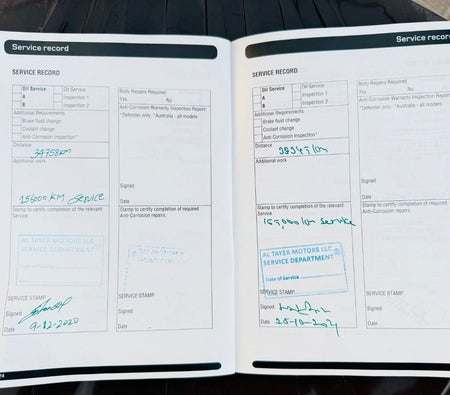 Service record
SERVICE RECORD
Oil Service Oil Service
A Inspection 1
B Inspection 2
Additional Requirements
Brake fluid change
Coolant change
Anti-Corrosion inspection*
Distance
34758km
Additional work
15000 KM Service
Stamp to certify completion of the relevant
Service
AL TAYER MOTORS LLC
SERVICE DEPARTMENT
Date of Service
SERVICE STAMP
Signed
Date 9-12-2020
Body Repairs Required
Yes No
Anti-Corrosion Warranty Inspection Report
*Defender only, *Australia - all models
Signed
Date
Stamp to certify completion of required
Anti-Corrosion repairs.
Signed
Date
24
Service record
SERVICE RECORD
Oil Service Oil Service
A Inspection 1
B Inspection 2
Additional Requirements
Brake fluid change
Coolant change
Anti-Corrosion inspection*
Distance
Additional work
Stamp to certify completion of the relevant
Service
Service
AL TAYER MOTORS LLC
SERVICE DEPARTMENT
Date of Service
SERVICE STAMP
Signed
Date
Body Repairs Required
Yes No
Anti-Corrosion Warranty Inspection Report
*Defender only, *Australia - all models
Signed
Date
Stamp to certify completion of required
Anti-Corrosion repairs.
Signed
Date